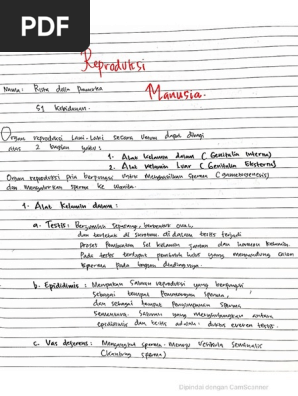 PDF
Reproduksi
Manusia.
Nama : Rista della
S1 Kebidanan.
Organ reproduksi Laki-Laki secara Umum dapat dibagi
atas 2 bagian yaitu :
1. Alat kelamin dalam ( Genitalia Interna)
2. Alat kelamin Luar ( Genitalia Eksterna)
Organ reproduksi Pria berfungsi untuk Menghasilkan Sperma (gametogenesis)
dan Menyalurkan sperma ke Wanita.
1. Alat Kelamin dalam :
a. Testis : Berjumlah sepasang, berbentuk oval,
dan terletak di scrotum. di dalam testis terjadi
Proses Pembentukan Sel kelamin jantan dan hormon kelamin.
Pada testis terdapat pembuluh halus yang mengandung calon
Sperma Pada bagian dindingnya.
b. Epididimis : Merupakan Saluran reproduksi yang berfungsi
Sebagai tempat Pematangan Sperma,
dan sebagai tempat Penyimpanan Sperma
Sementara. Saluran yang menghubungkan antara
epididimis dan testis adalah : ductus testis.
c. Vas deferens : Mengangkut sperma Menuju Vesikula Seminalis
( sperma)
Dipindai dengan CamScanner